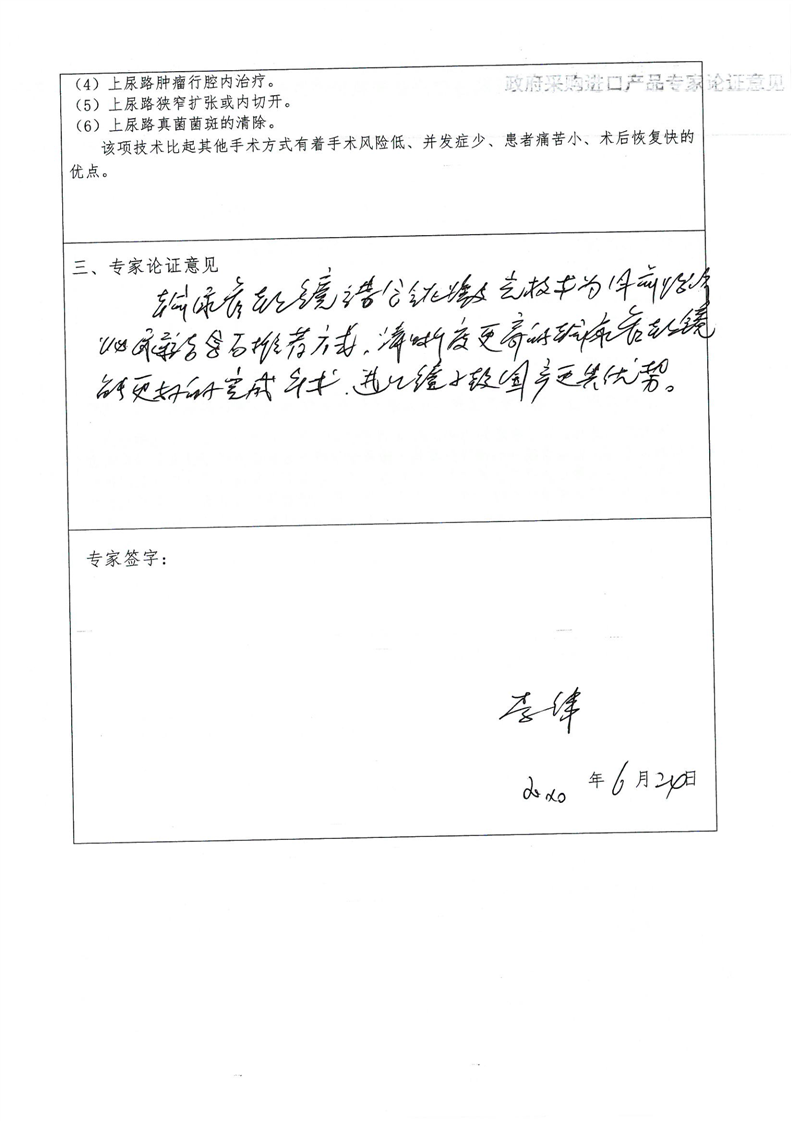 政府采购进口产品专家论证意见
（4）上尿路肿瘤行腔内治疗。
（5）上尿路狭窄扩张或内切开。
（6）上尿路真菌菌斑的清除。
该项技术比起其他手术方式有着手术风险低、并发症少、患者痛苦小、术后恢复快的
优点。
三、专家论证意见
输尿管软镜结合钬激光技术为目前治疗
泌尿系结石推荐方式，清晰度更高的输尿管软镜
能更好的完成手术，进口镜子较国产更具优势。
专家签字：
2020年6月24日